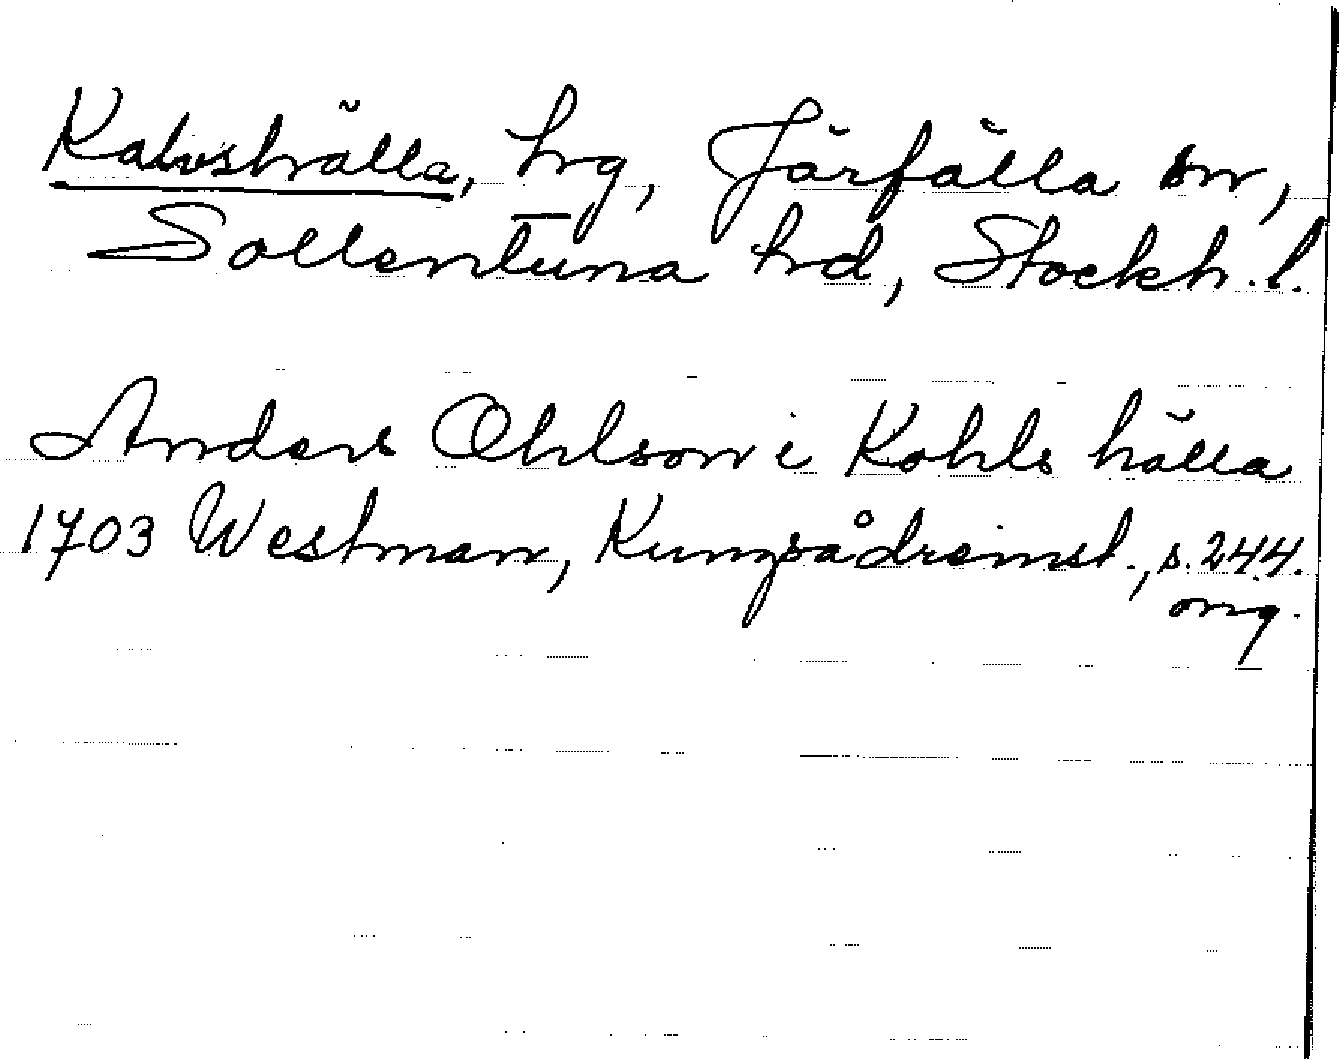 Kalvshälla, hg, Järfälla sn,
Sollentuna hd, Stockh. l.
Anders Ohlson i Kohls hälla
1703 Westman, Kungsådreinst., s. 244.
org.